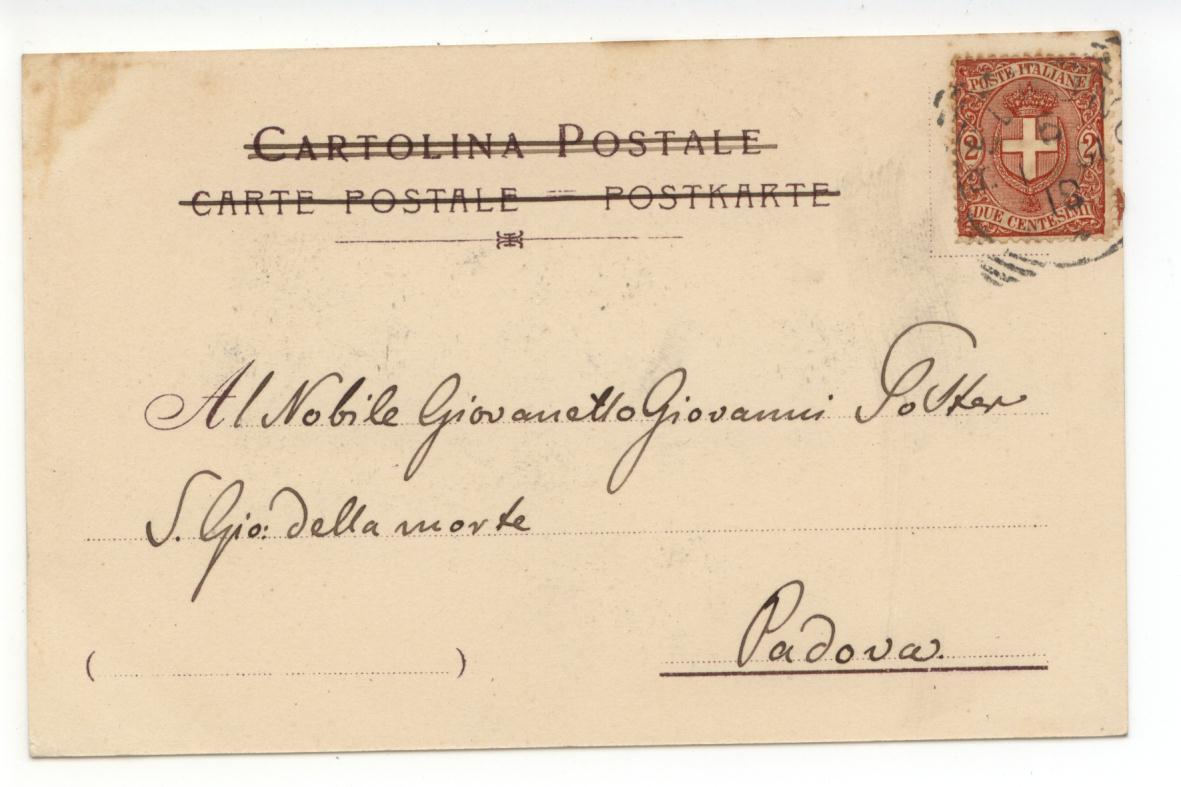 CARTOLINA POSTALE
CARTE POSTALE — POSTKARTE
POSTE ITALIANE
2 2
DUE CENTESIMI
18
Al Nobile Giovanetto Giovanni
S. Gio: della morte
Padova.
( )